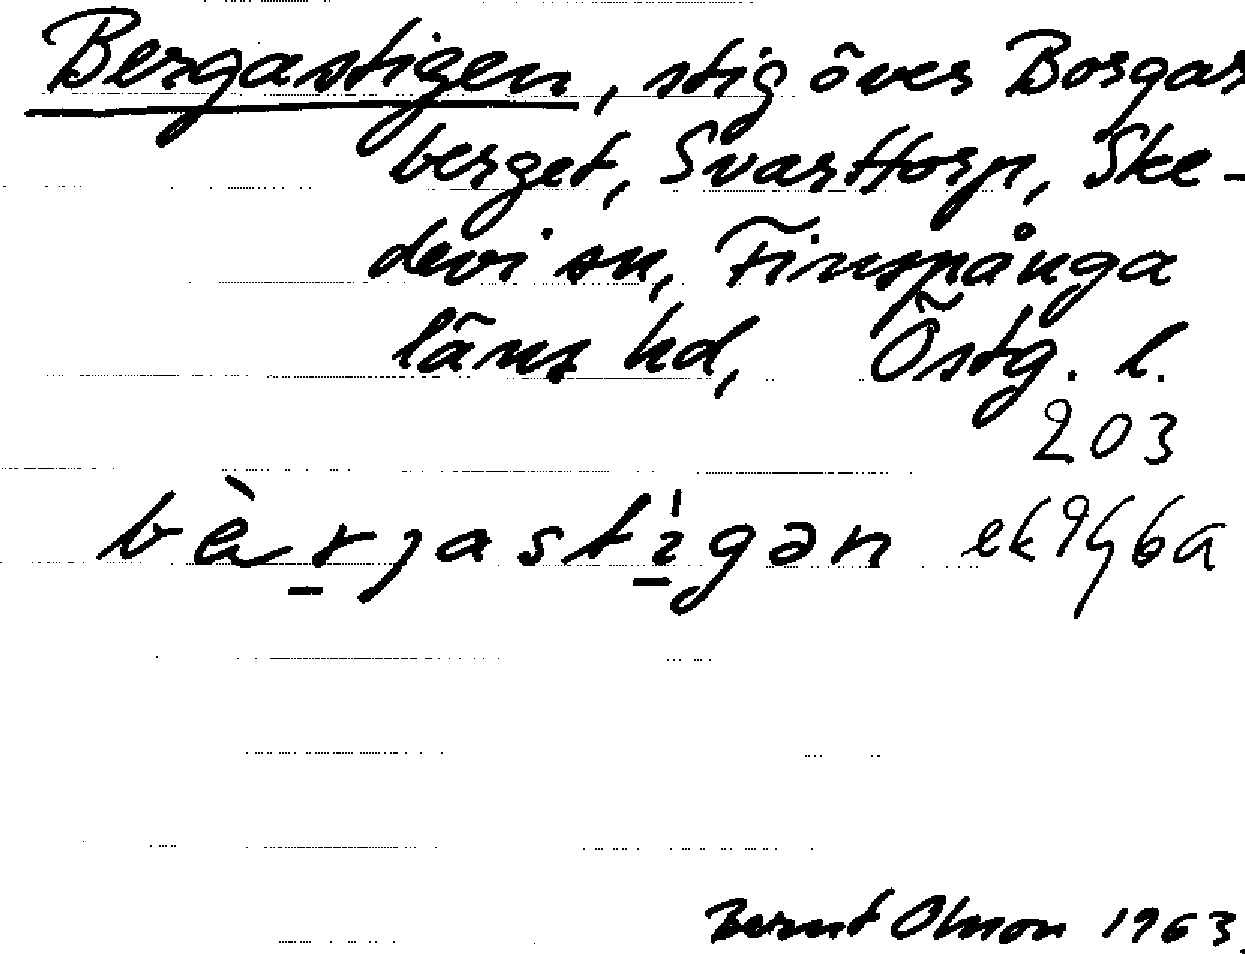 Bergastigen, stig över Borgar
berget, Svarttorp, Ske-
devi sn, Finspånga
läns hd, Östg. l.
203
bæ̀rjastigən ek 9G6a
Bernt Olsson 1963.